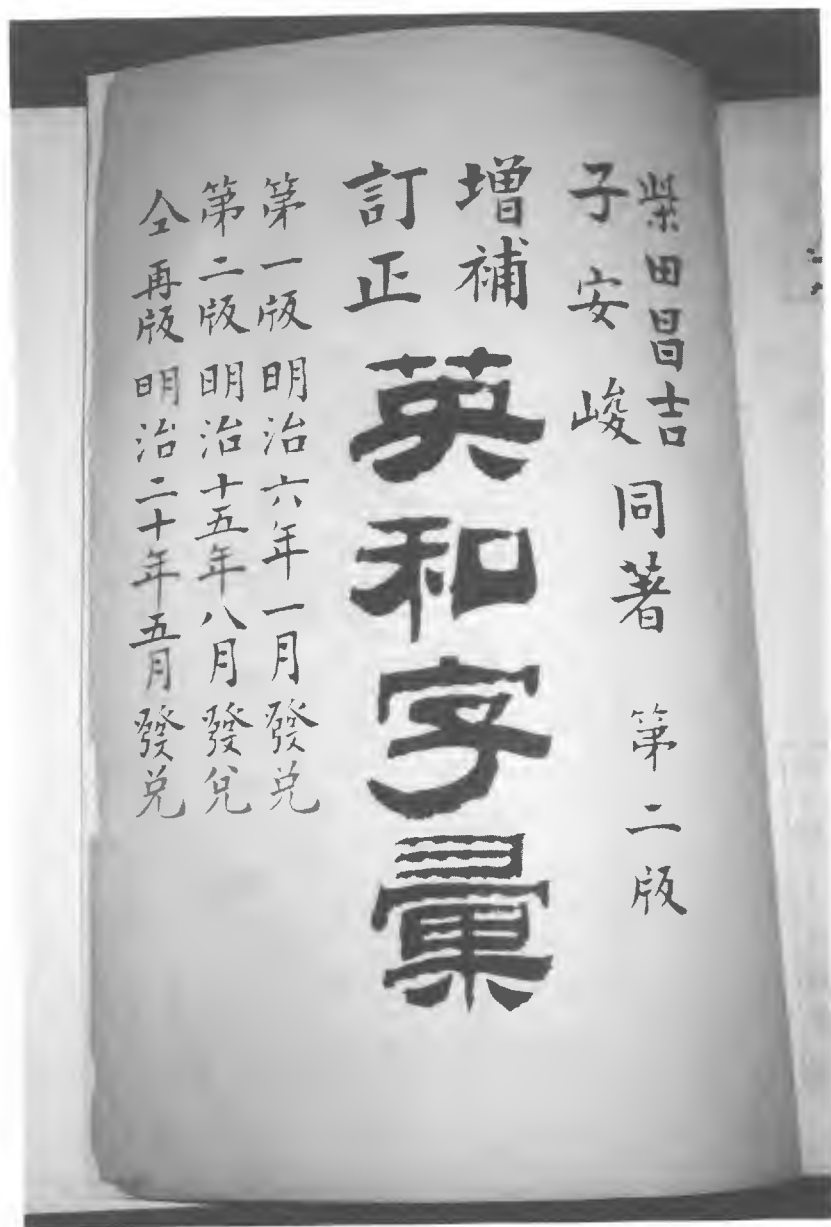 柴田昌吉
子安峻
同著 第二版
増補
訂正
英和字彙
第一版 明治六年一月發兌
第二版 明治十五年八月發兌
仝再版 明治二十年五月發兌